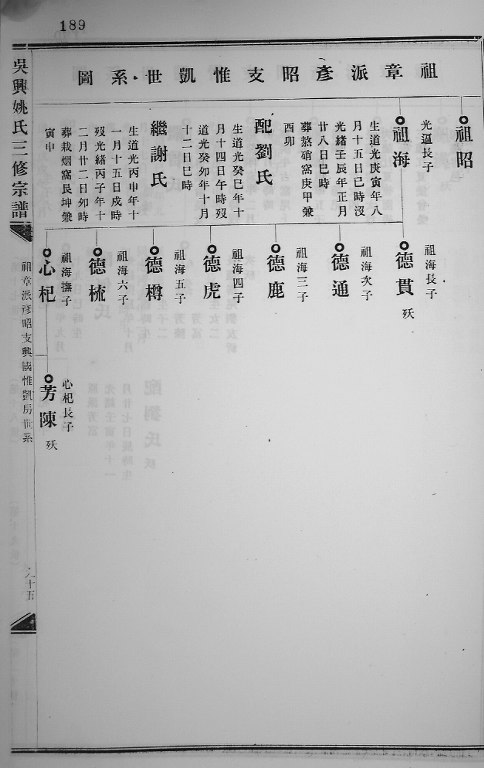 189
祖章派彥昭支惟凱世系圖
吳興姚氏三修宗譜
祖昭
光邇長子
祖海
生道光庚寅年八
月十五日巳時沒
光緒壬辰年正月
廿八日巳時
葬熬硝窩庚甲兼
酉卯
配劉氏
生道光癸巳年十
月十四日午時歿
道光癸卯年十月
十二日巳時
繼謝氏
生道光丙申年十
一月十五日戍時
歿光緒丙子年十
二月廿二日如時
葬栽烟窩艮坤兼
寅申
祖海長子
德貫 殀
祖海次子
德通
祖海三子
德鹿
祖海四子
德虎
祖海五子
德樽
祖海六子
德梳
祖海撫子
心杞
心杞長子
芳陳 殀
祖章派彥昭支興國惟凱房世系
八十五